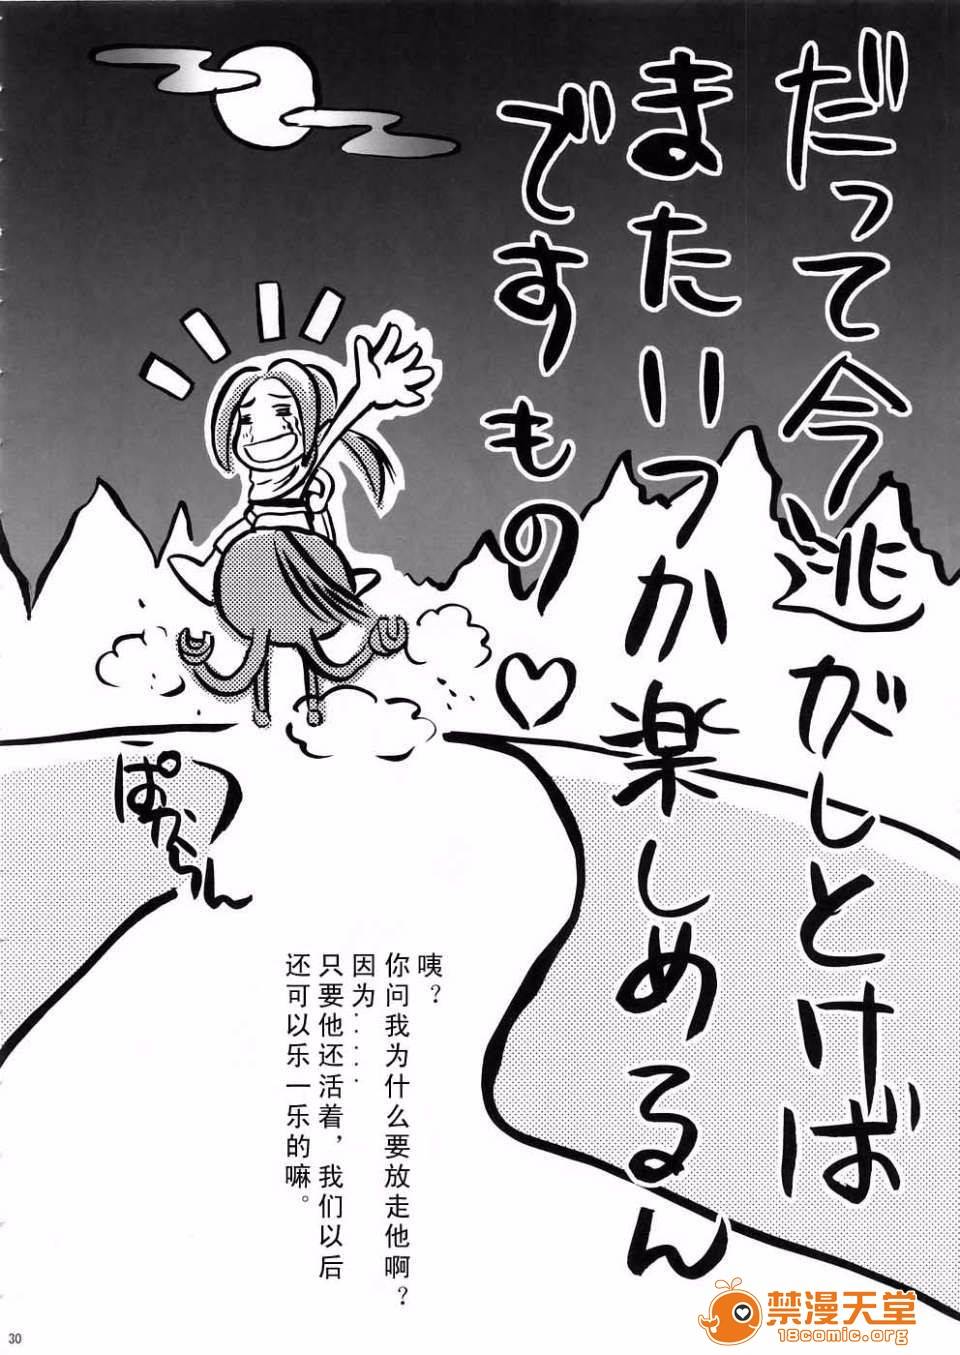 だって今逃がしとけば
またいつか楽しめるん
ですもの♡
ぱからん
咦？
你问我为什么要放走他啊？
因为．．．．
只要他还活着，我们以后
还可以乐一乐的嘛。
30
禁漫天堂
18comic.org